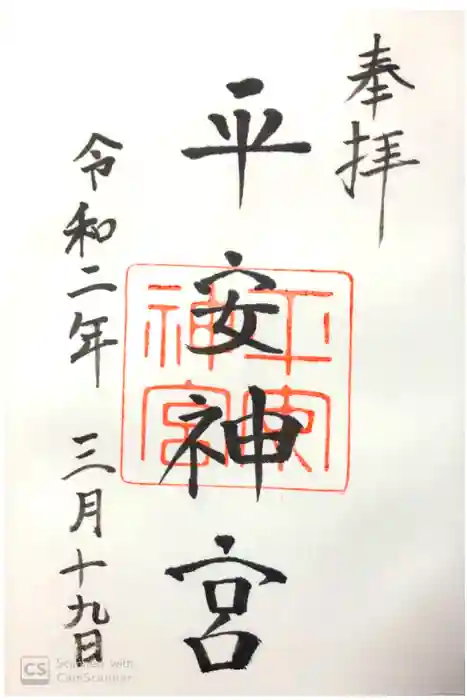 奉拝
平安神宮
平安神宮
令和二年 三月十九日
CS Scanned with
CamScanner